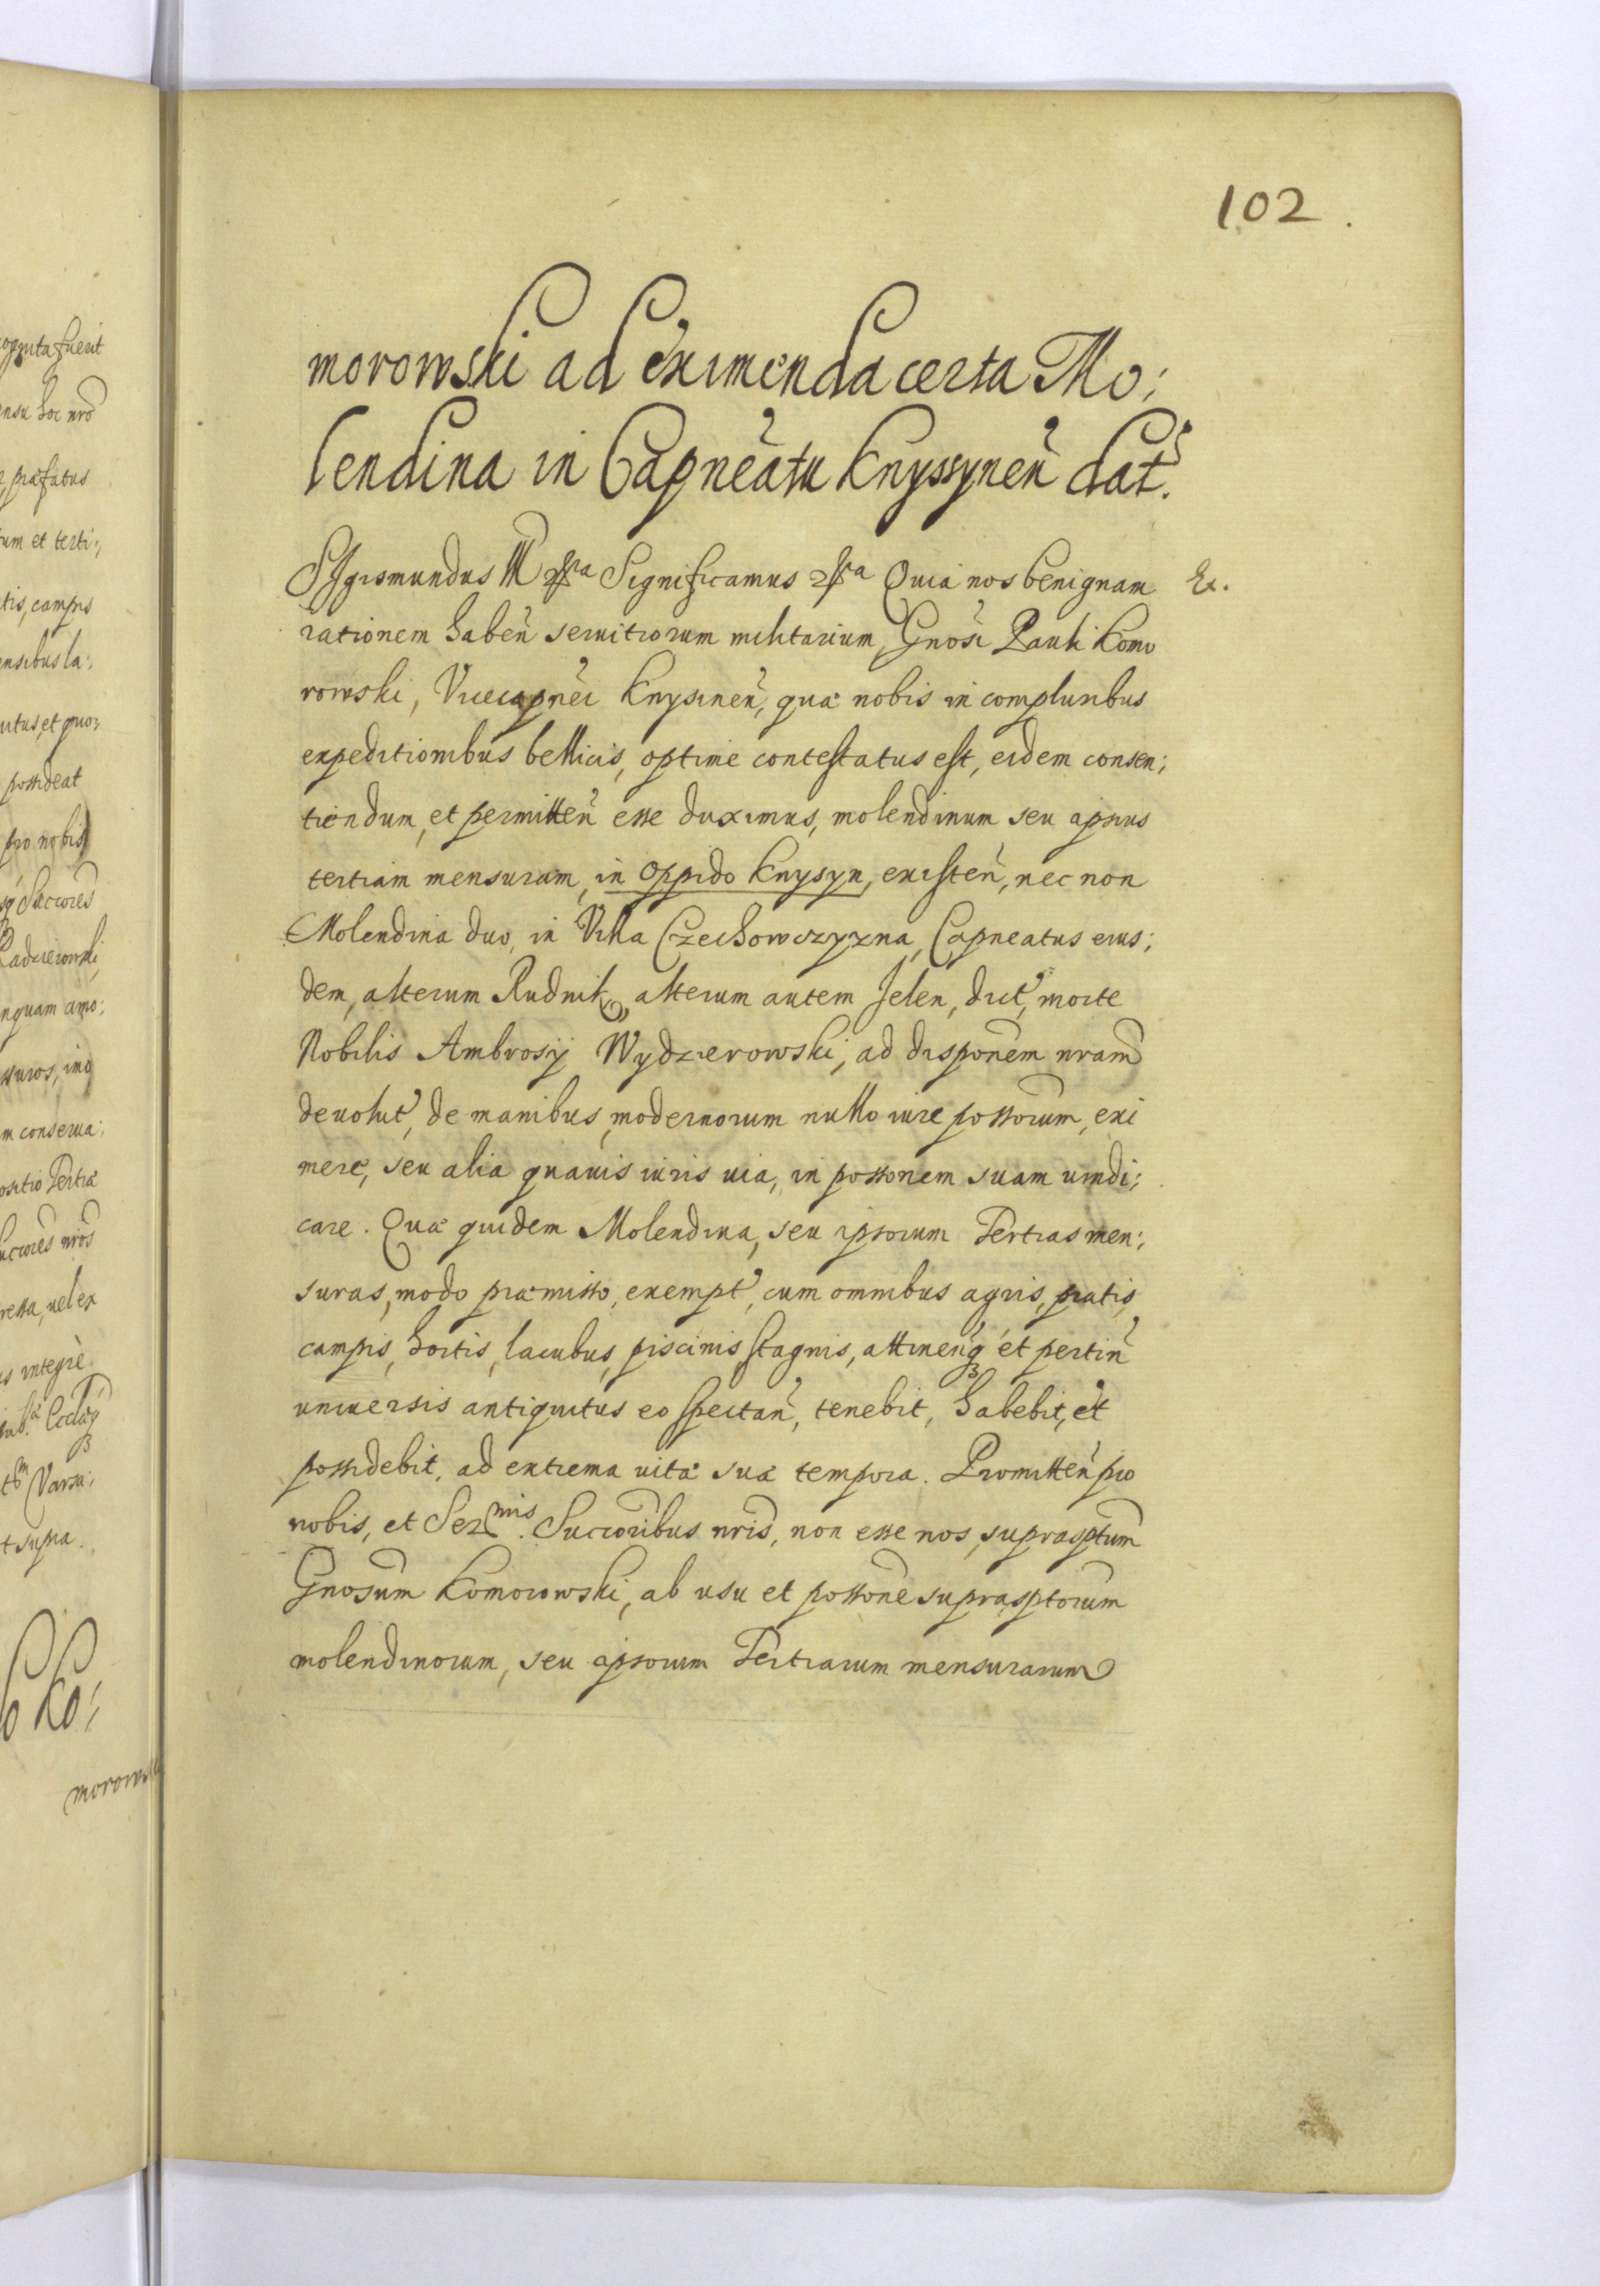 102.
morowski ad Eximenda certa Mo:
lendina in Capneatu Knyssynen̄ dat.
Sigismundus III etc̃a Significamus etc̃a Quia nos benignam Ex.
rationem haben̄ seruitiorum militarium, Gnosi Pauli Komo
rowski, Vicecapnei Knysinen̄, quæ nobis in compluribus
expeditionibus bellicis, optime contestatus est, eidem consen:
tiendum, et permitten̄ esse duximus, molendinum seu ipsius
tertiam mensuram, in Oppido Knysyn, existen̄, nec non
Molendina duo, in Villa Czechowczyzna, Capneatus eius:
dem, alterum Rudnik, alterum autem Jelen, dict̄, morte
Nobilis Ambrosij Wydzierowski, ad disponem nram
deuolut̄, de manibus, modernorum nullo iure possorum, exi
mere, seu alia quauis iuris uia, in possonem suam uindi:
care. Quæ quidem Molendina, seu ipsorum Tertias men:
suras, modo præmisso, exempt̄, cum omnibus agris, pratis,
campis, hortis, lacubus, piscinis, stagnis, attinen̄q3 et pertin̄
uniuersis antiquitus eo spectan̄, tenebit, habebit, et
possidebit, ad extrema uitæ suæ tempora. Promitten̄ pro
nobis, et Ser^mis. Succoribus nris, non esse nos, suprasptum
Gnosum Komorowski, ab usu et possone suprasptorum
molendinorum, seu ipsorum Tertiarum mensurarum
præfatus
um et terti:
tis, campis
ensibus la:
possideat
pro nobis
Succores
m conserua:
us integrè
Varsa:
t supra.
o Ko:
morowski